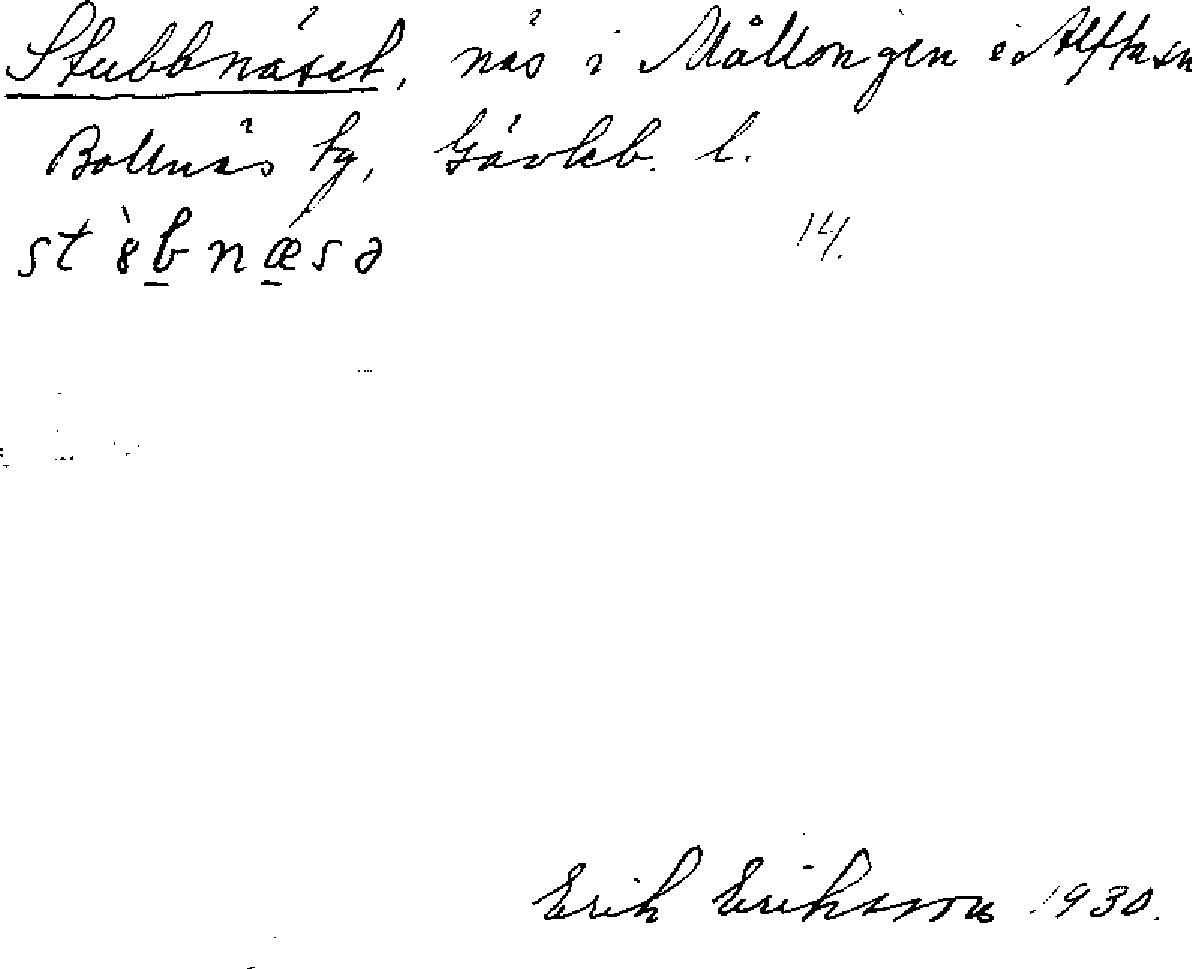 Stubbnäset, näs i Mållongen i Alfta sn
Bollnäs tg, Gävleb. l.
st 14.
Erik Eriksson 1930.